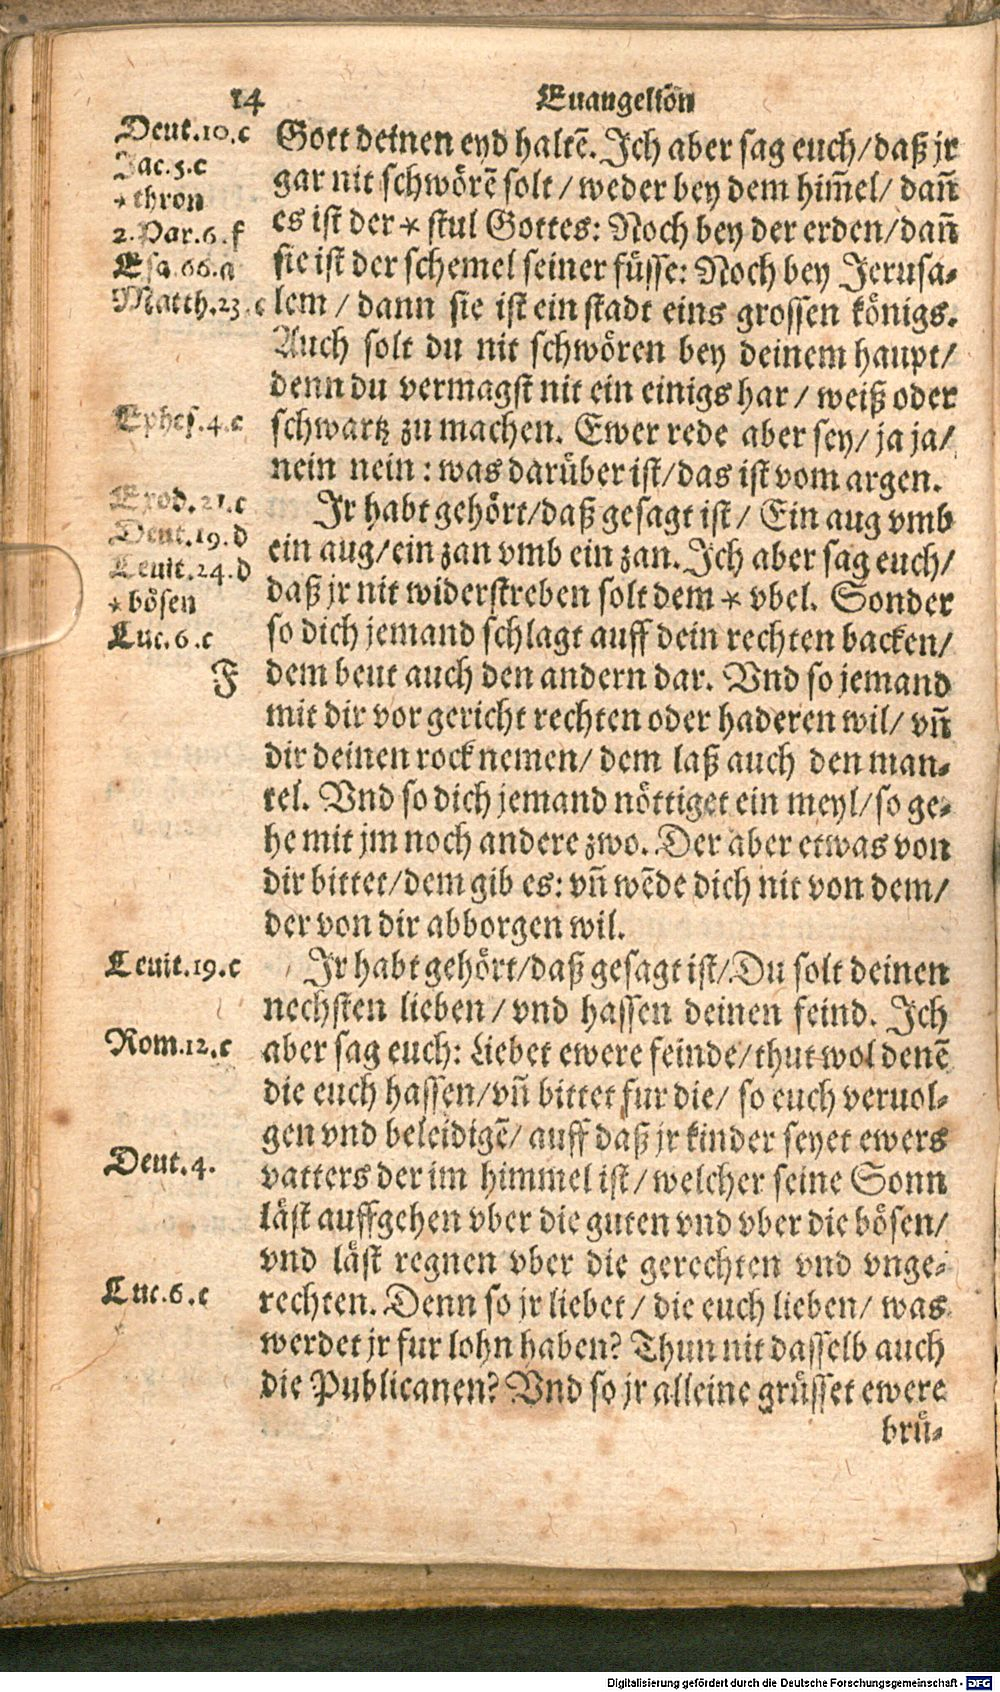 14
Euangelion
Deut.10.c
Jac.5.c
*thron
2.Par.6.f
Esa 66.a
Matth.23.c
Ephes.4.c
Exod.21.c
Deut.19.d
Leuit.24.d
*bösen
Luc.6.c
F
Leuit.19.c
Rom.12.c
Deut.4.
Luc.6.c
Gott deinen eyd haltẽ. Ich aber sag euch/daß jr
gar nit schwörẽ solt / weder bey dem him̃el/ dañ
es ist der * stul Gottes: Noch bey der erden/dañ
sie ist der schemel seiner füsse: Noch bey Jerusa⸗
lem / dann sie ist ein stadt eins grossen königs.
Auch solt du nit schwören bey deinem haupt/
denn du vermagst nit ein einigs har / weiß oder
schwartz zu machen. Ewer rede aber sey/ ja ja/
nein nein : was darüber ist/das ist vom argen.
Ir habt gehört/daß gesagt ist/ Ein aug vmb
ein aug/ein zan vmb ein zan. Ich aber sag euch/
daß jr nit widerstreben solt dem * vbel. Sonder
so dich jemand schlagt auff dein rechten backen/
dem beut auch den andern dar. Vnd so jemand
mit dir vor gericht rechten oder haderen wil/ vñ
dir deinen rock nemen/ dem laß auch den man⸗
tel. Vnd so dich jemand nöttiget ein meyl/so ge⸗
he mit jm noch andere zwo. Der aber etwas von
dir bittet/dem gib es: vñ wẽde dich nit von dem/
der von dir abborgen wil.
Ir habt gehört/daß gesagt ist/Du solt deinen
nechsten lieben/ vnd hassen deinen feind. Ich
aber sag euch: Liebet ewere feinde/thut wol denẽ
die euch hassen/vñ bittet fur die/ so euch veruol⸗
gen vnd beleidigẽ/ auff daß jr kinder seyet ewers
vatters der im himmel ist/ welcher seine Sonn
läst auffgehen vber die guten vnd vber die bösen/
vnd läst regnen vber die gerechten vnd vnge⸗
rechten. Denn so jr liebet / die euch lieben/ was
werdet jr fur lohn haben? Thun nit dasselb auch
die Publicanen? Vnd so jr alleine grüsset ewere
brü⸗
Digitalisierung gefördert durch die Deutsche Forschungsgemeinschaft - DFG